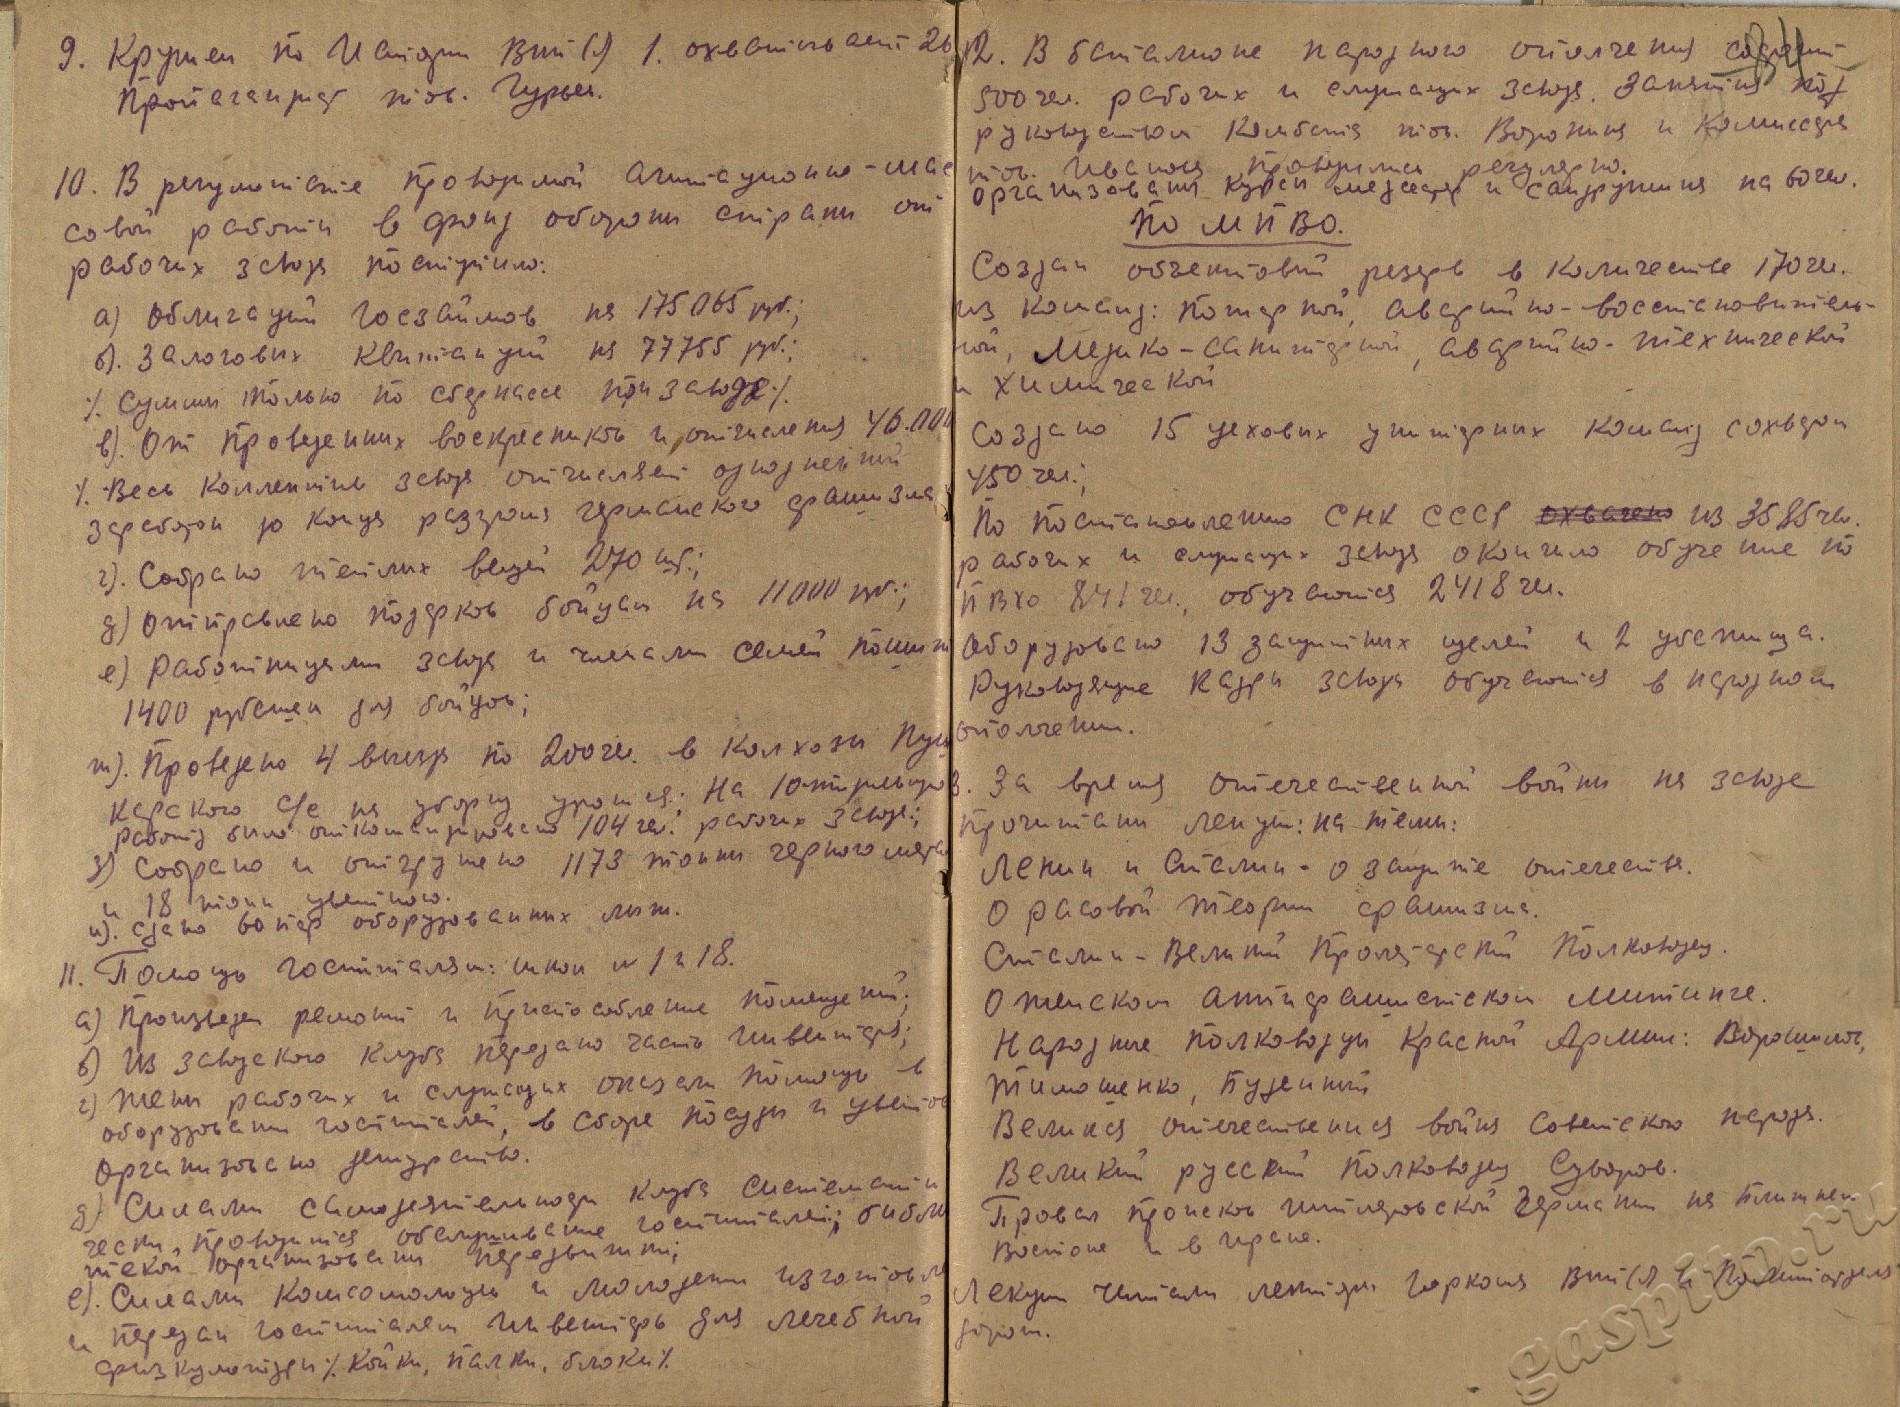 9. Кружек по Истории ВКП(б) 1. охватывает 26
Пропагандист тов. Гурьев.
10. В результате проводимой агитационно-мас
совой работы в фонд обороны страны от
рабочих завода поступило:
а) Облигаций Госзаймов на 175065 руб.;
б). Залоговых квитанций на 77755 руб.;
/. Сумма только по сберкассе при заводе./.
в). От проведенных воскресников и отчисления 46.000
/. Весь коллектив завода отчисляет однодневный
заработок до конца разгрома германского фашизма
г). Собрано теплых вещей 270 шт.;
д) Отправлено подарков бойцам на 11000 руб.;
е) Работницами завода и членами семей пошито
1400 рубашек для бойцов;
ж). Проведено 4 выезда по 200 чел. в колхозы Пуш
карского с/с на уборку урожая; На 10-ти дневную
работу было откомандировано 104 чел. рабочих завода;
з) Собрано и отгружено 1173 тонны черного мета
и 18 тонн цветного.
и). Сдано 60 пар оборудованных лыж.
11. Помощь госпиталям: школ № 1 и 18.
а) Произведен ремонт и приспособление помещений;
б) Из заводского клуба передано часть инвентаря;
г) Жены рабочих и служащих оказали помощь в
оборудовании госпиталей, в сборе посуды и цветов
Организовано дежурство.
д) Силами самодеятельности клуба системати
чески проводится обслуживание госпиталей; библи
текой организованы передвижки;
е). Силами комсомольцев и молодежи изготовл
и передан госпиталям инвентарь для лечебной
физкультуры /. Койки, палки, блоки /.
12. В баталионе народного ополчения состоит
500 чел. рабочих и служащих завода. Занятия под
руководством Комбата тов. Воронина и Комиссара
тов. Иванова проводились регулярно.
Организованы курсы медсестер и сандружина на 60 чел.
По МПВО.
Создан объектовый резерв в количестве 170 чел.
из команд: Пожарной, аварийно-восстановитель-
ной, Медико-санитарной, аварийно-технической
и химической
Создано 15 цеховых унитарных команд с охватом
450 чел.;
По постановлению СНК СССР охвачено из 3585 чел.
рабочих и служащих завода окончило обучение по
ПВХО 841 чел., обучаются 2418 чел.
Оборудовано 13 защитных щелей и 2 убежища.
Руководящие кадры завода обучаются в народном
ополчении.
3. За время отечественной войны на заводе
прочитаны лекции: на темы:
Ленин и Сталин - о защите отечества.
О расовой теории фашизма.
Сталин - Великий Пролетарский Полководец.
О женском антифашистском митинге.
Народные полководцы Красной Армии: Ворошилов,
Тимошенко, Буденный
Великая отечественная война Советского народа.
Великий русский полководец Суворов.
Провал происков гитлеровской Германии на ближнем
Востоке и в Иране.
Лекции читали лекторы Горкома ВКП(б) и Политотдела
дороги.
gaspito.ru